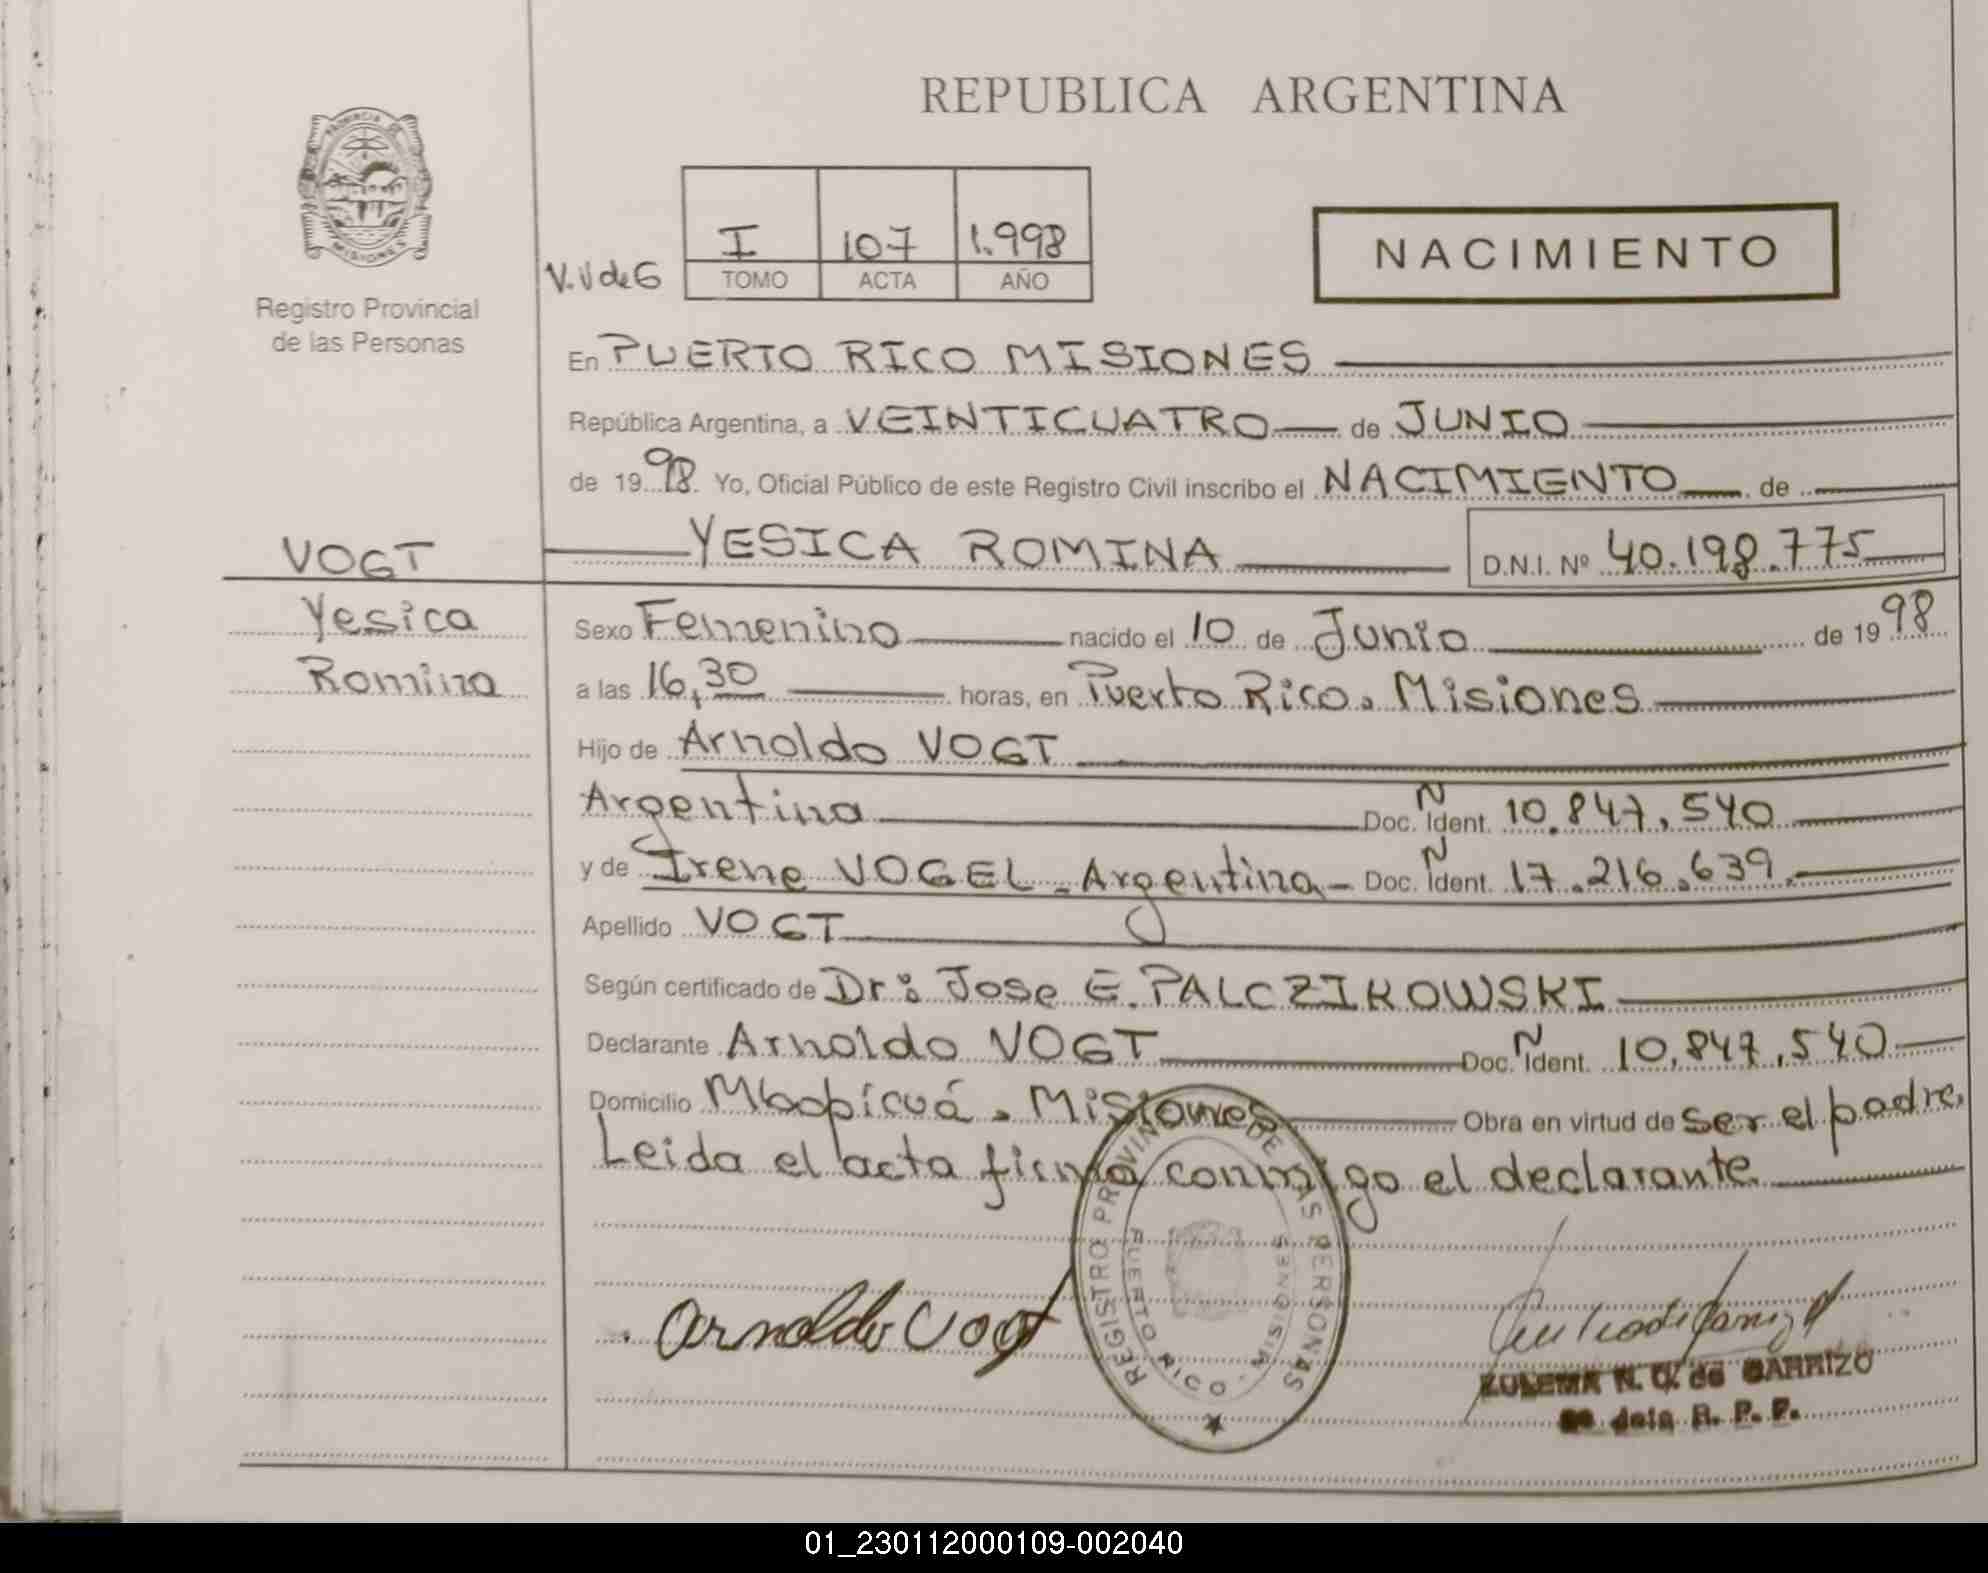 REPUBLICA ARGENTINA
PROVINCIA DE
MISIONES
Registro Provincial
de las Personas
V.V de G
I 107 1.998
TOMO ACTA AÑO
NACIMIENTO
En PUERTO RICO MISIONES
República Argentina, a VEINTICUATRO de JUNIO
de 19 98 Yo, Oficial Público de este Registro Civil inscribo el NACIMIENTO de
VOGT
YESICA ROMINA D.N.I. Nº 40.198.775
Yesica
Romina
Sexo Femenino nacido el 10 de Junio de 19 98
a las 16,30 horas, en Puerto Rico. Misiones
Hijo de Arnoldo VOGT
Argentina Doc. Ñ Ident. 10.847.540
y de Irene VOGEL - Argentina - Doc. Ñ Ident. 17.216.639.
Apellido VOGT
Según certificado de Dr: Jose E. PALCZIKOWSKI
Declarante Arnoldo VOGT Doc. Ñ Ident. 10.847.540
Domicilio Mbopicuá. Misiones Obra en virtud de ser el padre.
Leida el acta firma conmigo el declarante.
REGISTRO PROVINCIAL DE LAS PERSONAS
PUERTO RICO - MISIONES
Arnoldo Vogt
ZULEMA N. V. de GARRIZO
R. P. P.
01_230112000109-002040